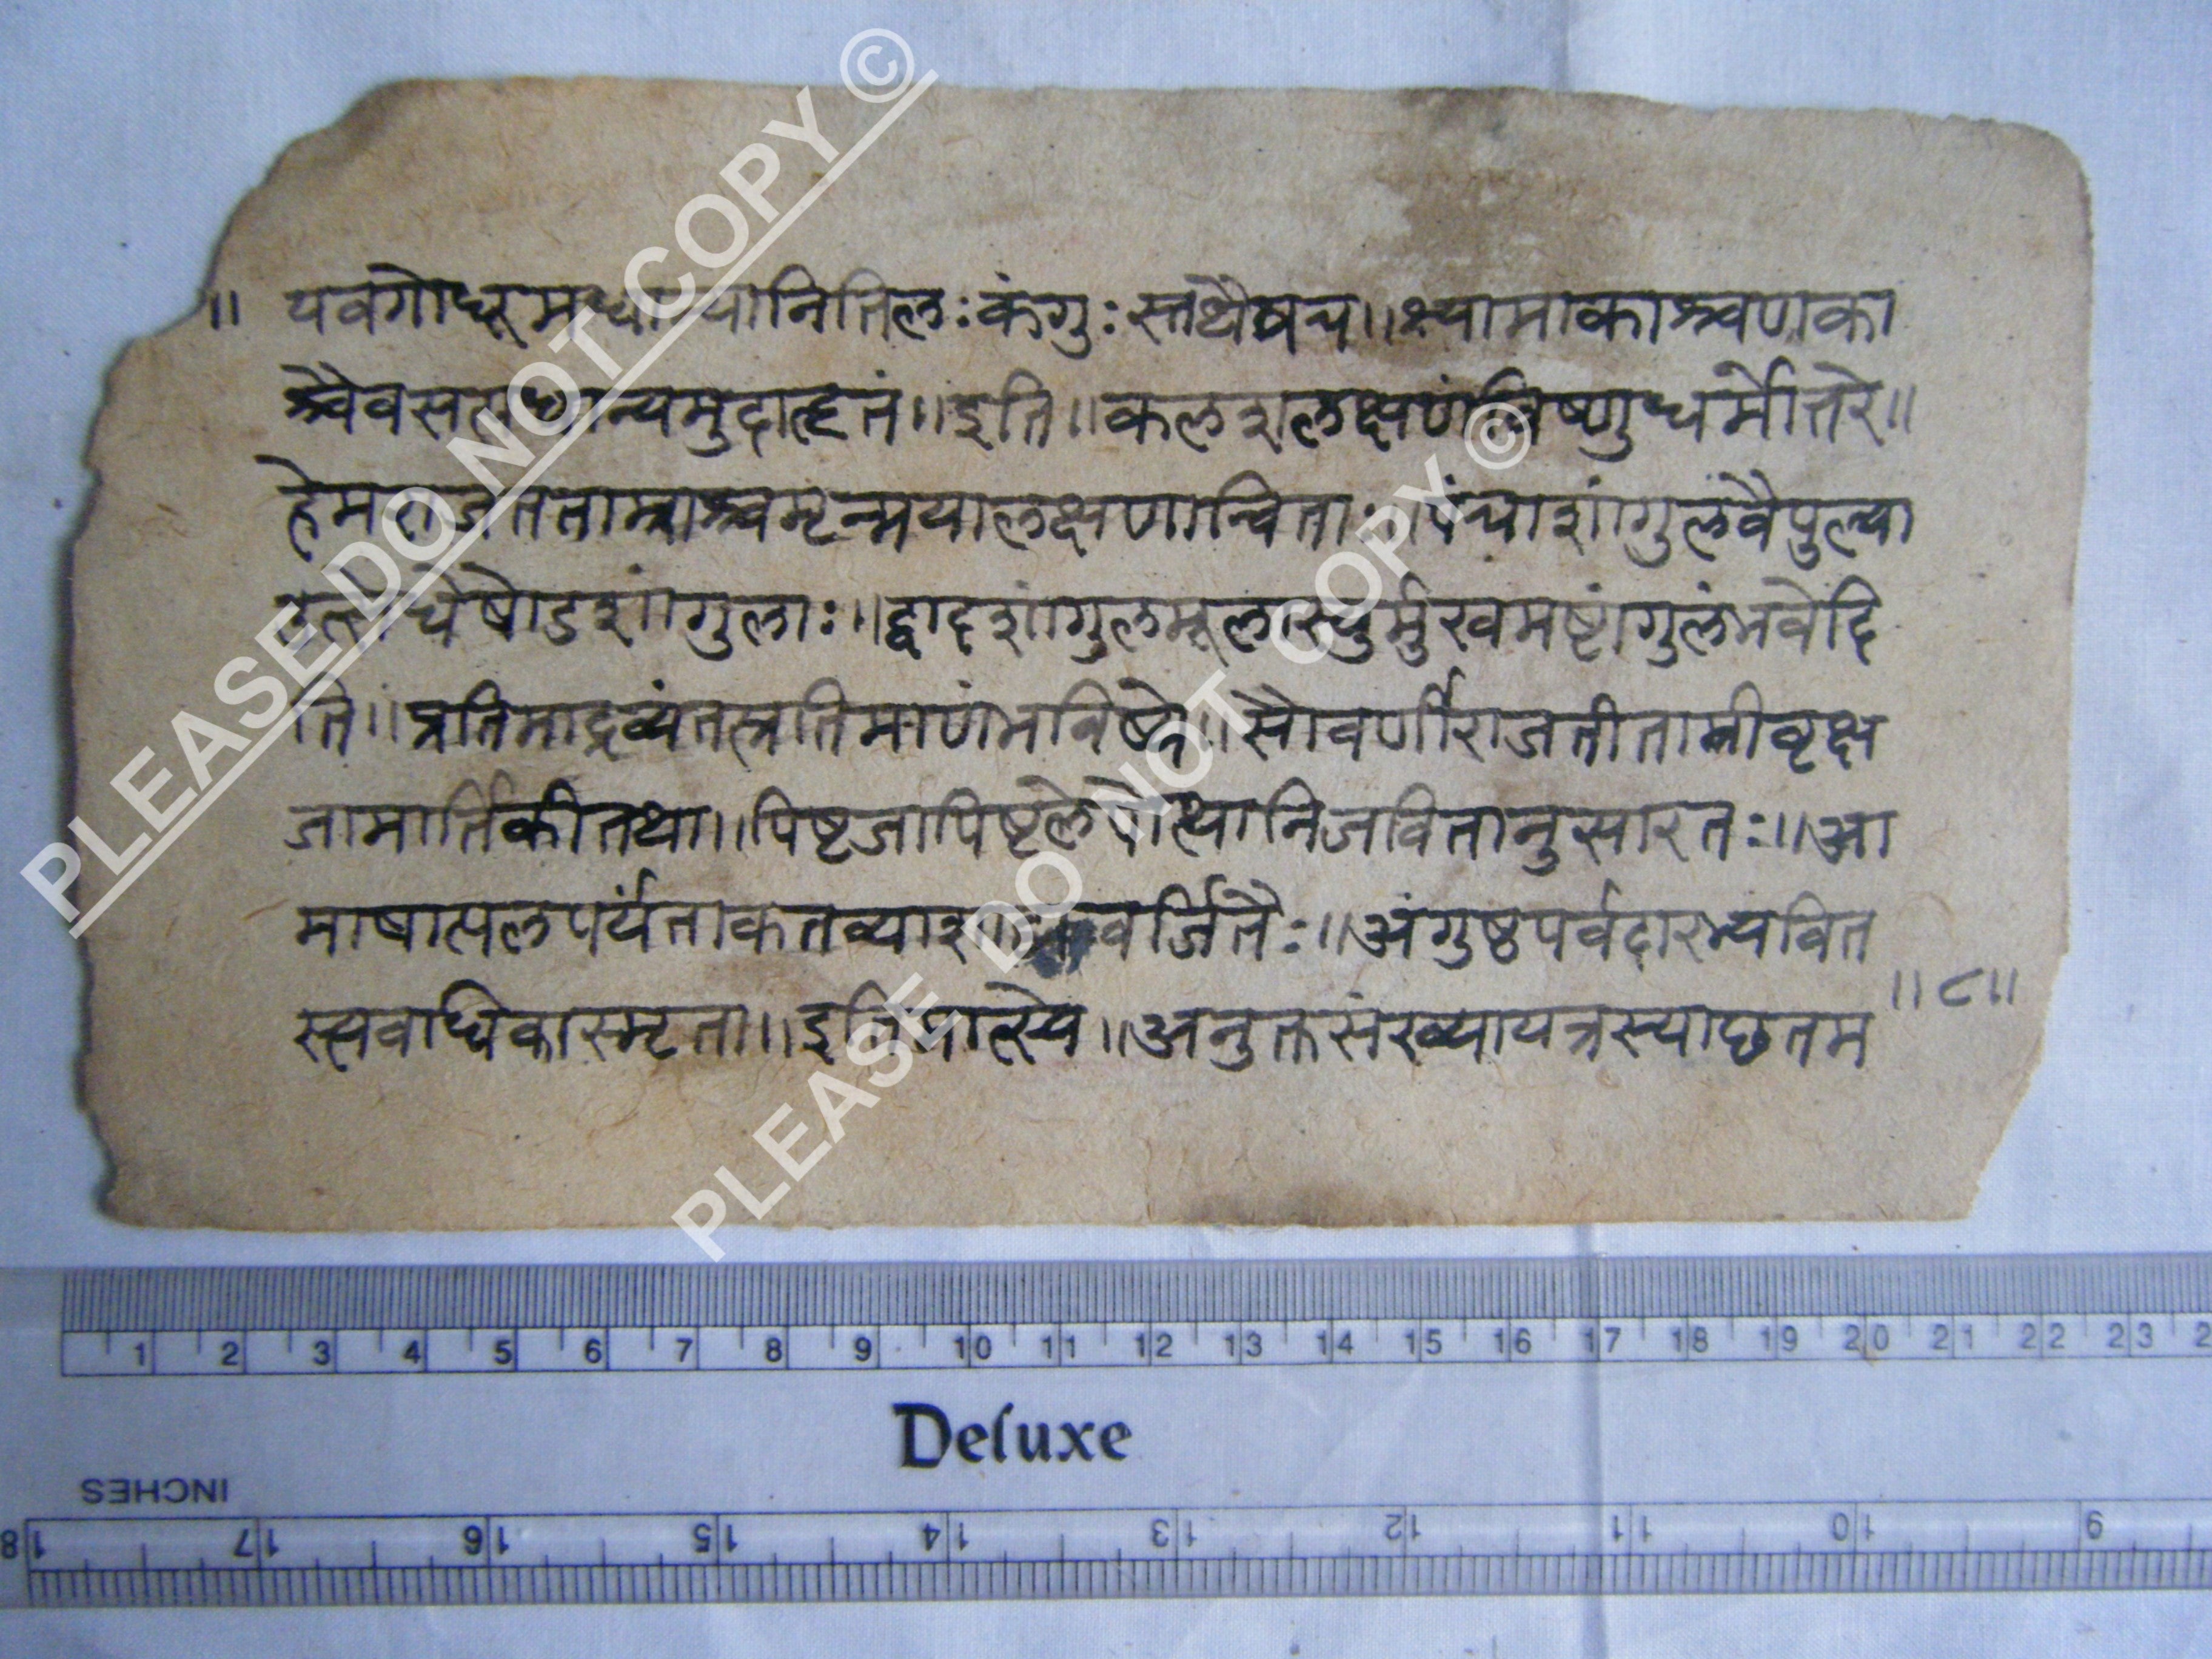 PLEASE DO NOT COPY ©
PLEASE DO NOT COPY ©
॥ यवगोधूमधान्यानितिलः कंगुः स्तथैवच॥श्यामाकाश्चणका
श्चैवसप्तधान्यमुदाहृतं॥इति॥कलशलक्षणंविष्णुधर्मोत्तरे॥
हेमराजतताम्राश्चमृन्मयालक्षणान्विताः॥पंचाशांगुलंवैपुल्या
षोडशांगुलाः॥द्वादशांगुलमूलास्युर्मुखमष्टांगुलंभवेदि
ति॥प्रतिमाद्रव्यंतत्प्रतिमाणंभविष्ये॥सौवर्णीराजतीताम्रीवृक्ष
जामार्तिकीतथा॥पिष्टजापिष्टलेपोत्थानिजवित्तानुसारतः॥आ
माषात्पलपर्यंताकतव्या वर्जितैः॥अंगुष्ठपर्वदारभ्यवित
स्त्यवाधिकास्मृता॥इतिमात्स्ये॥अनुक्तसंख्यायत्रस्याछतम
॥८॥
1 2 3 4 5 6 7 8 9 10 11 12 13 14 15 16 17 18 19 20 21 22 23 2
Deluxe
INCHES
18 17 16 15 14 13 12 11 10 9